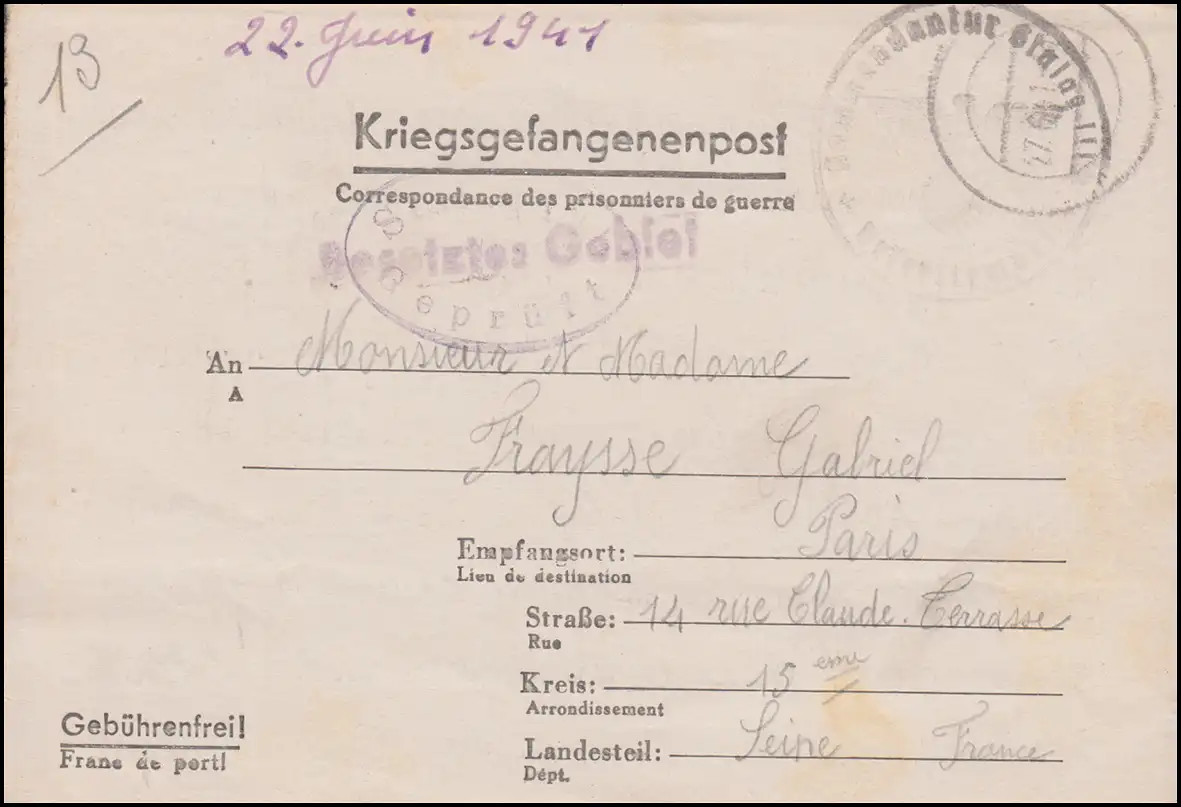 13
22. Juin 1941
Kommandantur Stalag III
Kriegsgefangenenpost
Correspondance des prisonniers de guerre
Besetztes Gebiet
Geprüft
An Monsieur et Madame
A
Fraysse Gabriel
Empfangsort: Paris
Lieu de destination
Straße: 14 rue Claude. Terrasse
Rue
Kreis: 15 eme
Arrondissement
Gebührenfrei!
Franc de port!
Landesteil: Seine France
Dépt.